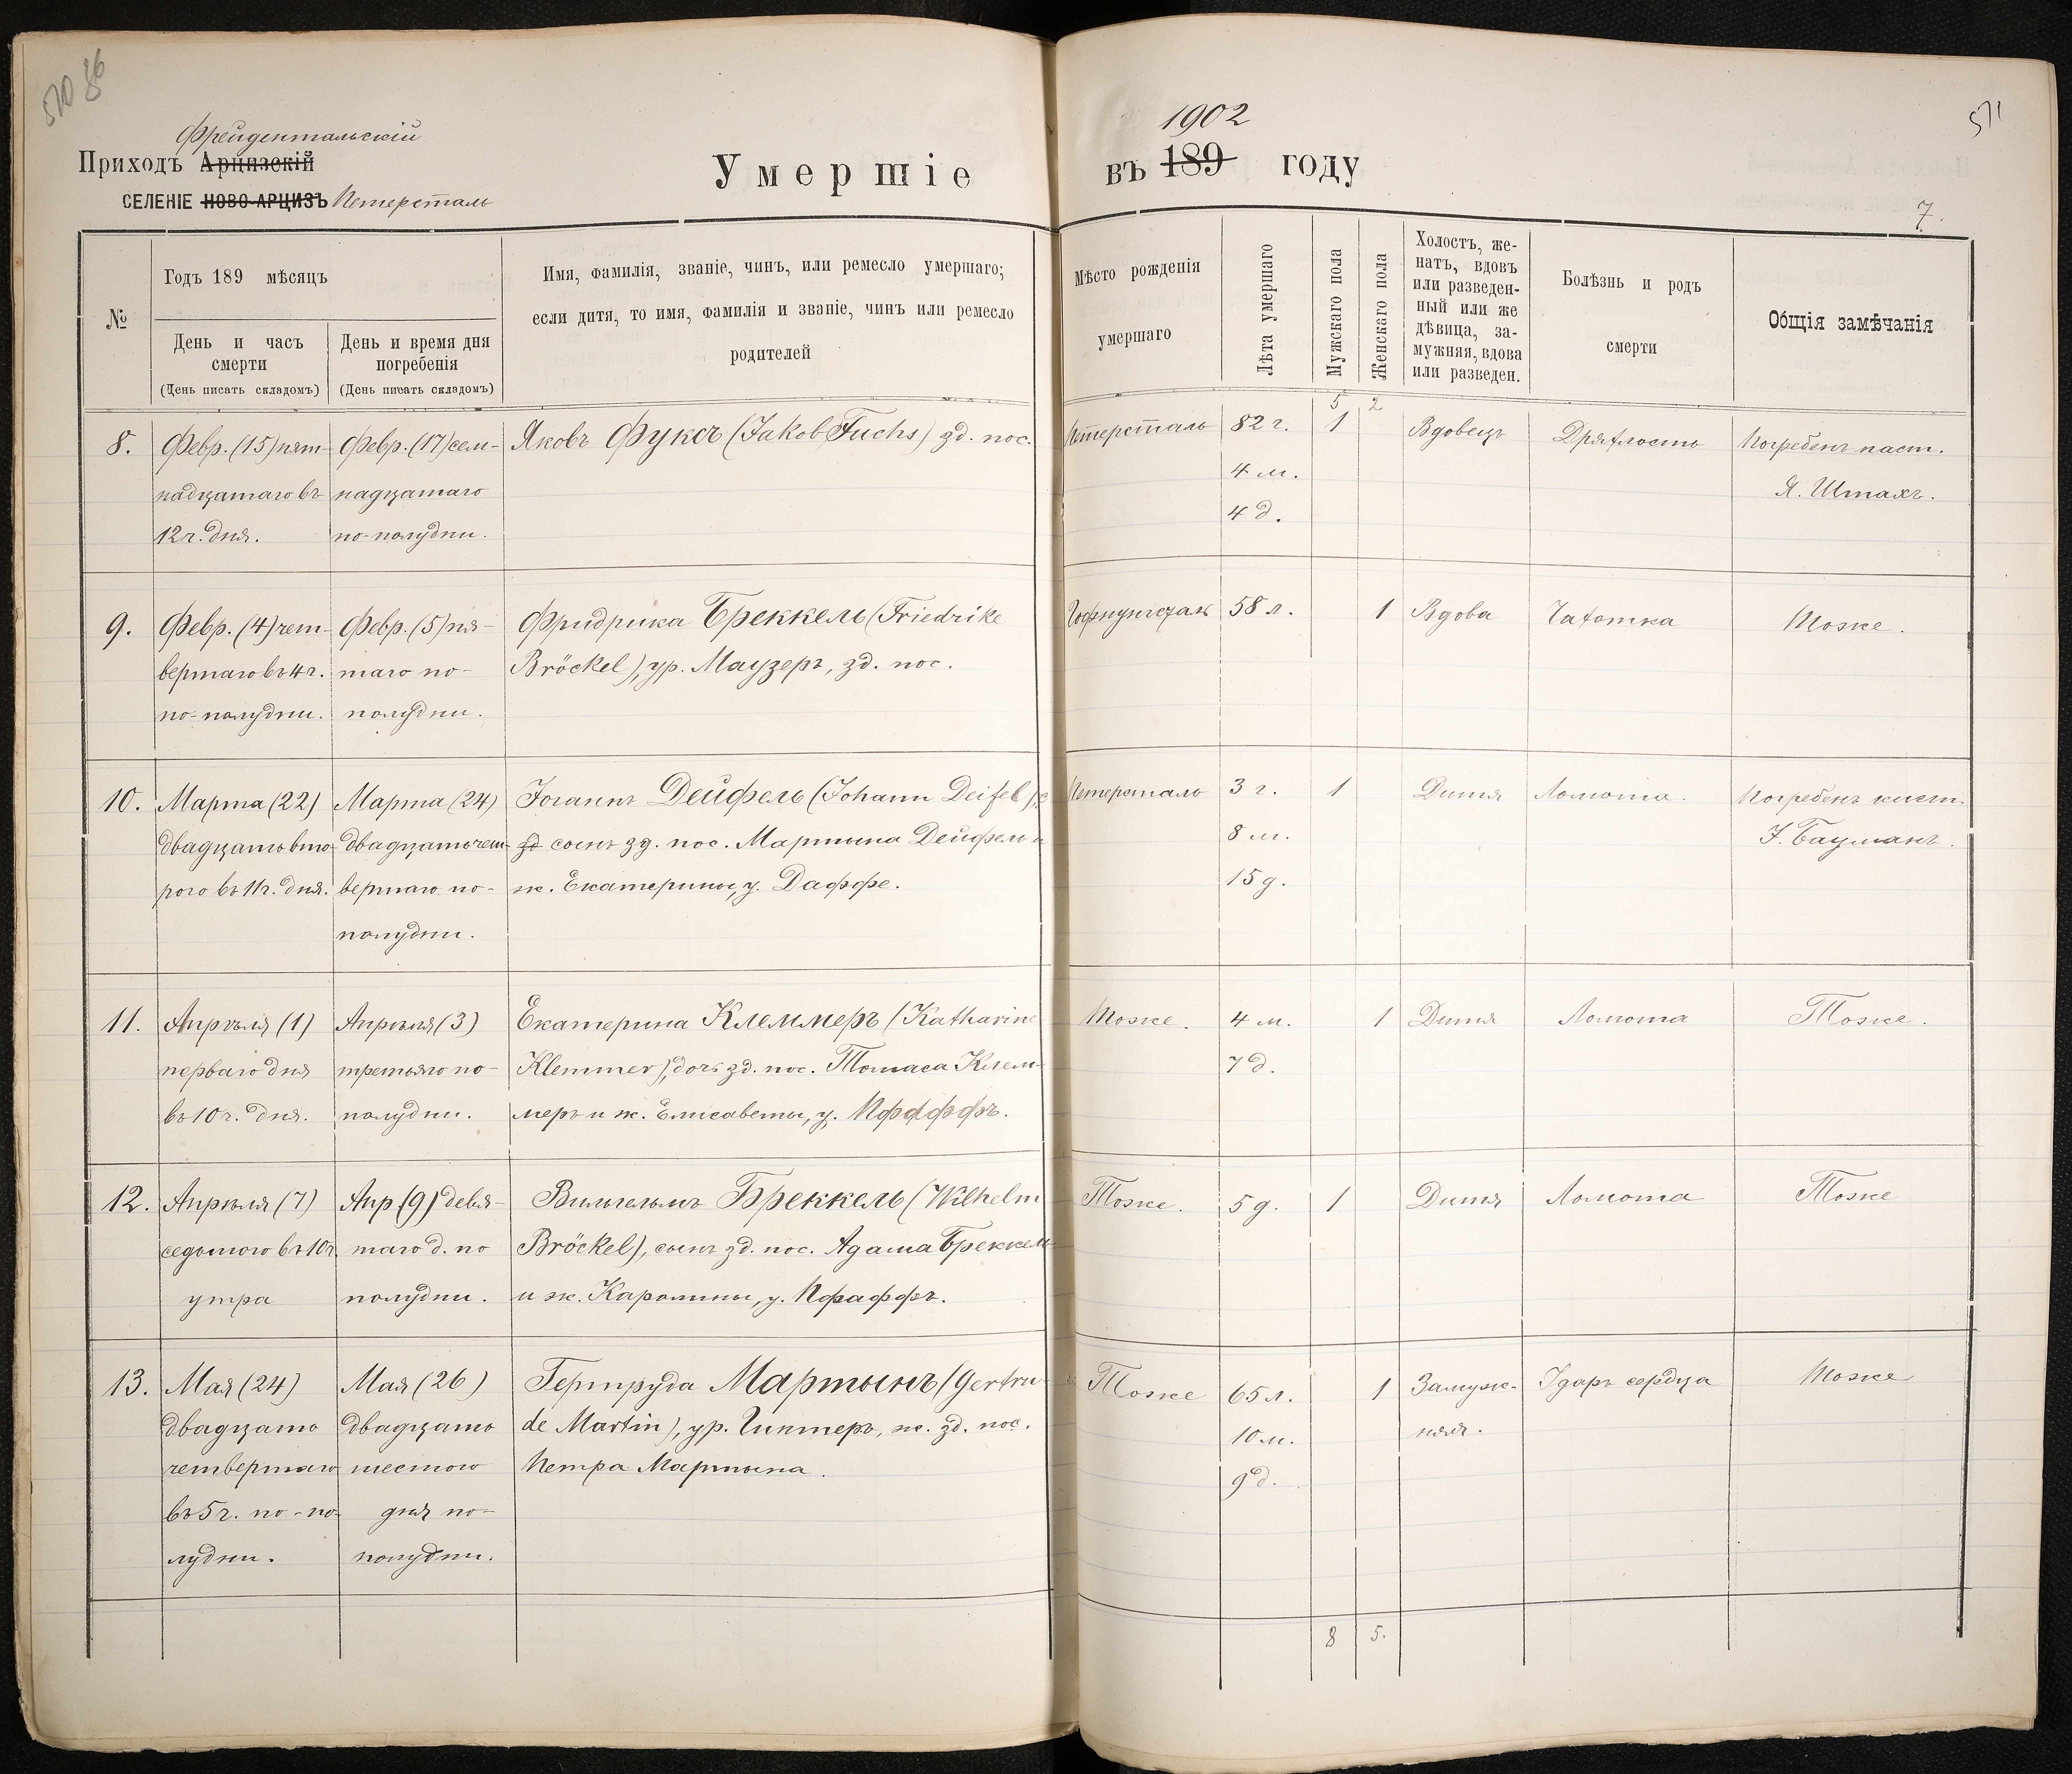 570 86
Фрейдентальскій
Приходъ Арцизскій
СЕЛЕНІЕ НОВО-АРЦИЗЪ Петерсталь
Умершіе
1902
въ 189 году
571
7.
№
Годъ 189 мѣсяцъ
День и часъ
смерти
(День писать складомъ)
День и время дня
погребенія
(День писать складомъ)
Имя, фамилія, званіе, чинъ, или ремесло умершаго;
если дитя, то имя, фамилія и званіе, чинъ или ремесло
родителей
Мѣсто рожденія
умершаго
Лѣта умершаго
Мужскаго пола
Женскаго пола
Холостъ, же-
натъ, вдовъ
или разведен-
ный или же
дѣвица, за-
мужняя, вдова
или разведен.
Болѣзнь и родъ
смерти
Общія замѣчанія
5 2
8.
Февр. (15) пят-
надцатаго въ
12 ч. дня.
Февр. (17) сем-
надцатаго
по-полудни.
Яковъ Фуксъ (Jakob Fuchs) зд. пос.
Петерсталь
82 г.
4 м.
4 д.
1
Вдовецъ
Дряхлость
Погребенъ паст.
Я. Штахъ.
9.
Февр. (4) чет-
вертаго въ 4 ч.
по-полудни.
Февр. (5) пя-
таго по-
полудни.
Фридрика Бреккель (Friedrike
Bröckel), ур. Маузеръ, зд. пос.
Гофнунгсталь
58 л.
1
Вдова
Чахотка
Тоже.
10.
Марта (22)
двадцать вто-
рого въ 11 ч. дня.
Марта (24)
двадцать чет-
вертаго по-
полудни.
Іоганнъ Дейфель (Johann Deifel)
зд сынъ зд. пос. Мартина Дейфель и
ж. Екатерины, у. Даффе.
Петерсталь
3 г.
8 м.
15 д.
1
Дитя
Ломота.
Погребенъ кист.
І. Бауманъ.
11.
Апрѣля (1)
перваго дня
въ 10 ч. дня.
Апрѣля (3)
третьяго по-
полудни.
Екатерина Клеммеръ (Katharine
Klemmer), дочь зд. пос. Томаса Клем-
меръ и ж. Елисаветы, у. Пфаффъ.
Тоже.
4 м.
7 д.
1
Дитя
Ломота
Тоже.
12.
Апрѣля (7)
седьмого въ 10 ч.
утра
Апр (9) девя-
таго д. по
полудни.
Вильгельмъ Бреккель (Wilhelm
Bröckel), сынъ зд. пос. Адама Бреккель
и ж. Каролины, у. Пфаффъ.
Тоже.
5 д.
1
Дитя
Ломота
Тоже
13.
Мая (24)
двадцать
четвертаго
въ 5 ч. по-по-
лудни.
Мая (26)
двадцать
шестого
дня по-
полудни.
Гертруда Мартынъ (Gertru-
de Martin), ур. Гинтеръ, ж. зд. пос.
Петра Мартына.
Тоже
65 л.
10 м.
9 д.
1
Замуж-
няя.
Ударъ сердца
Тоже
8 5.